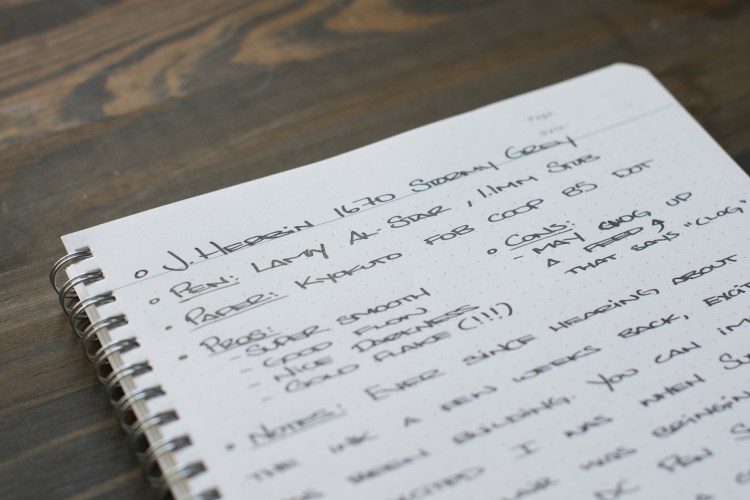 Page:
Date:
• J. Herbin 1670 Stormy Grey
• Pen: Lamy Al-Star, 1.1mm Stub
• Paper: Kyokuto FOB COOP B5 Dot
• Pros:
- Super smooth
- Good flow
- Nice darkness
- Gold flake (!!!)
• Cons:
- May clog up
a feed
that says "clog"
• Notes: Ever since hearing about
this ink a few weeks back, exci
has been building. You can im
excited I was when S
was bringin
pen